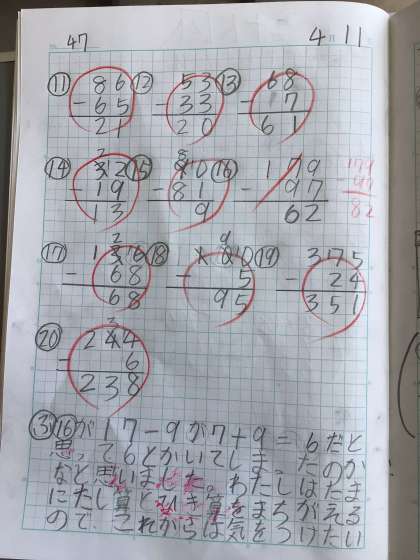 47 4 11
⑪ 86 ⑫ 53 ⑬ 68
- 65 - 33 - 7
21 20 61
⑭ 32 ⑮ 90 ⑯ 179 179
- 19 - 81 - 97 - 97
13 9 62 82
⑰ 136 ⑱ 100 ⑲ 375
- 68 - 5 - 24
68 95 351
⑳ 244
- 6
238
③⑯が17-9が7+9=6だと
思って6とかいてしまったのか
なと思いました。わたしはたま
にたし算とひき算をまちがえる
ので、これからは気をつけたい